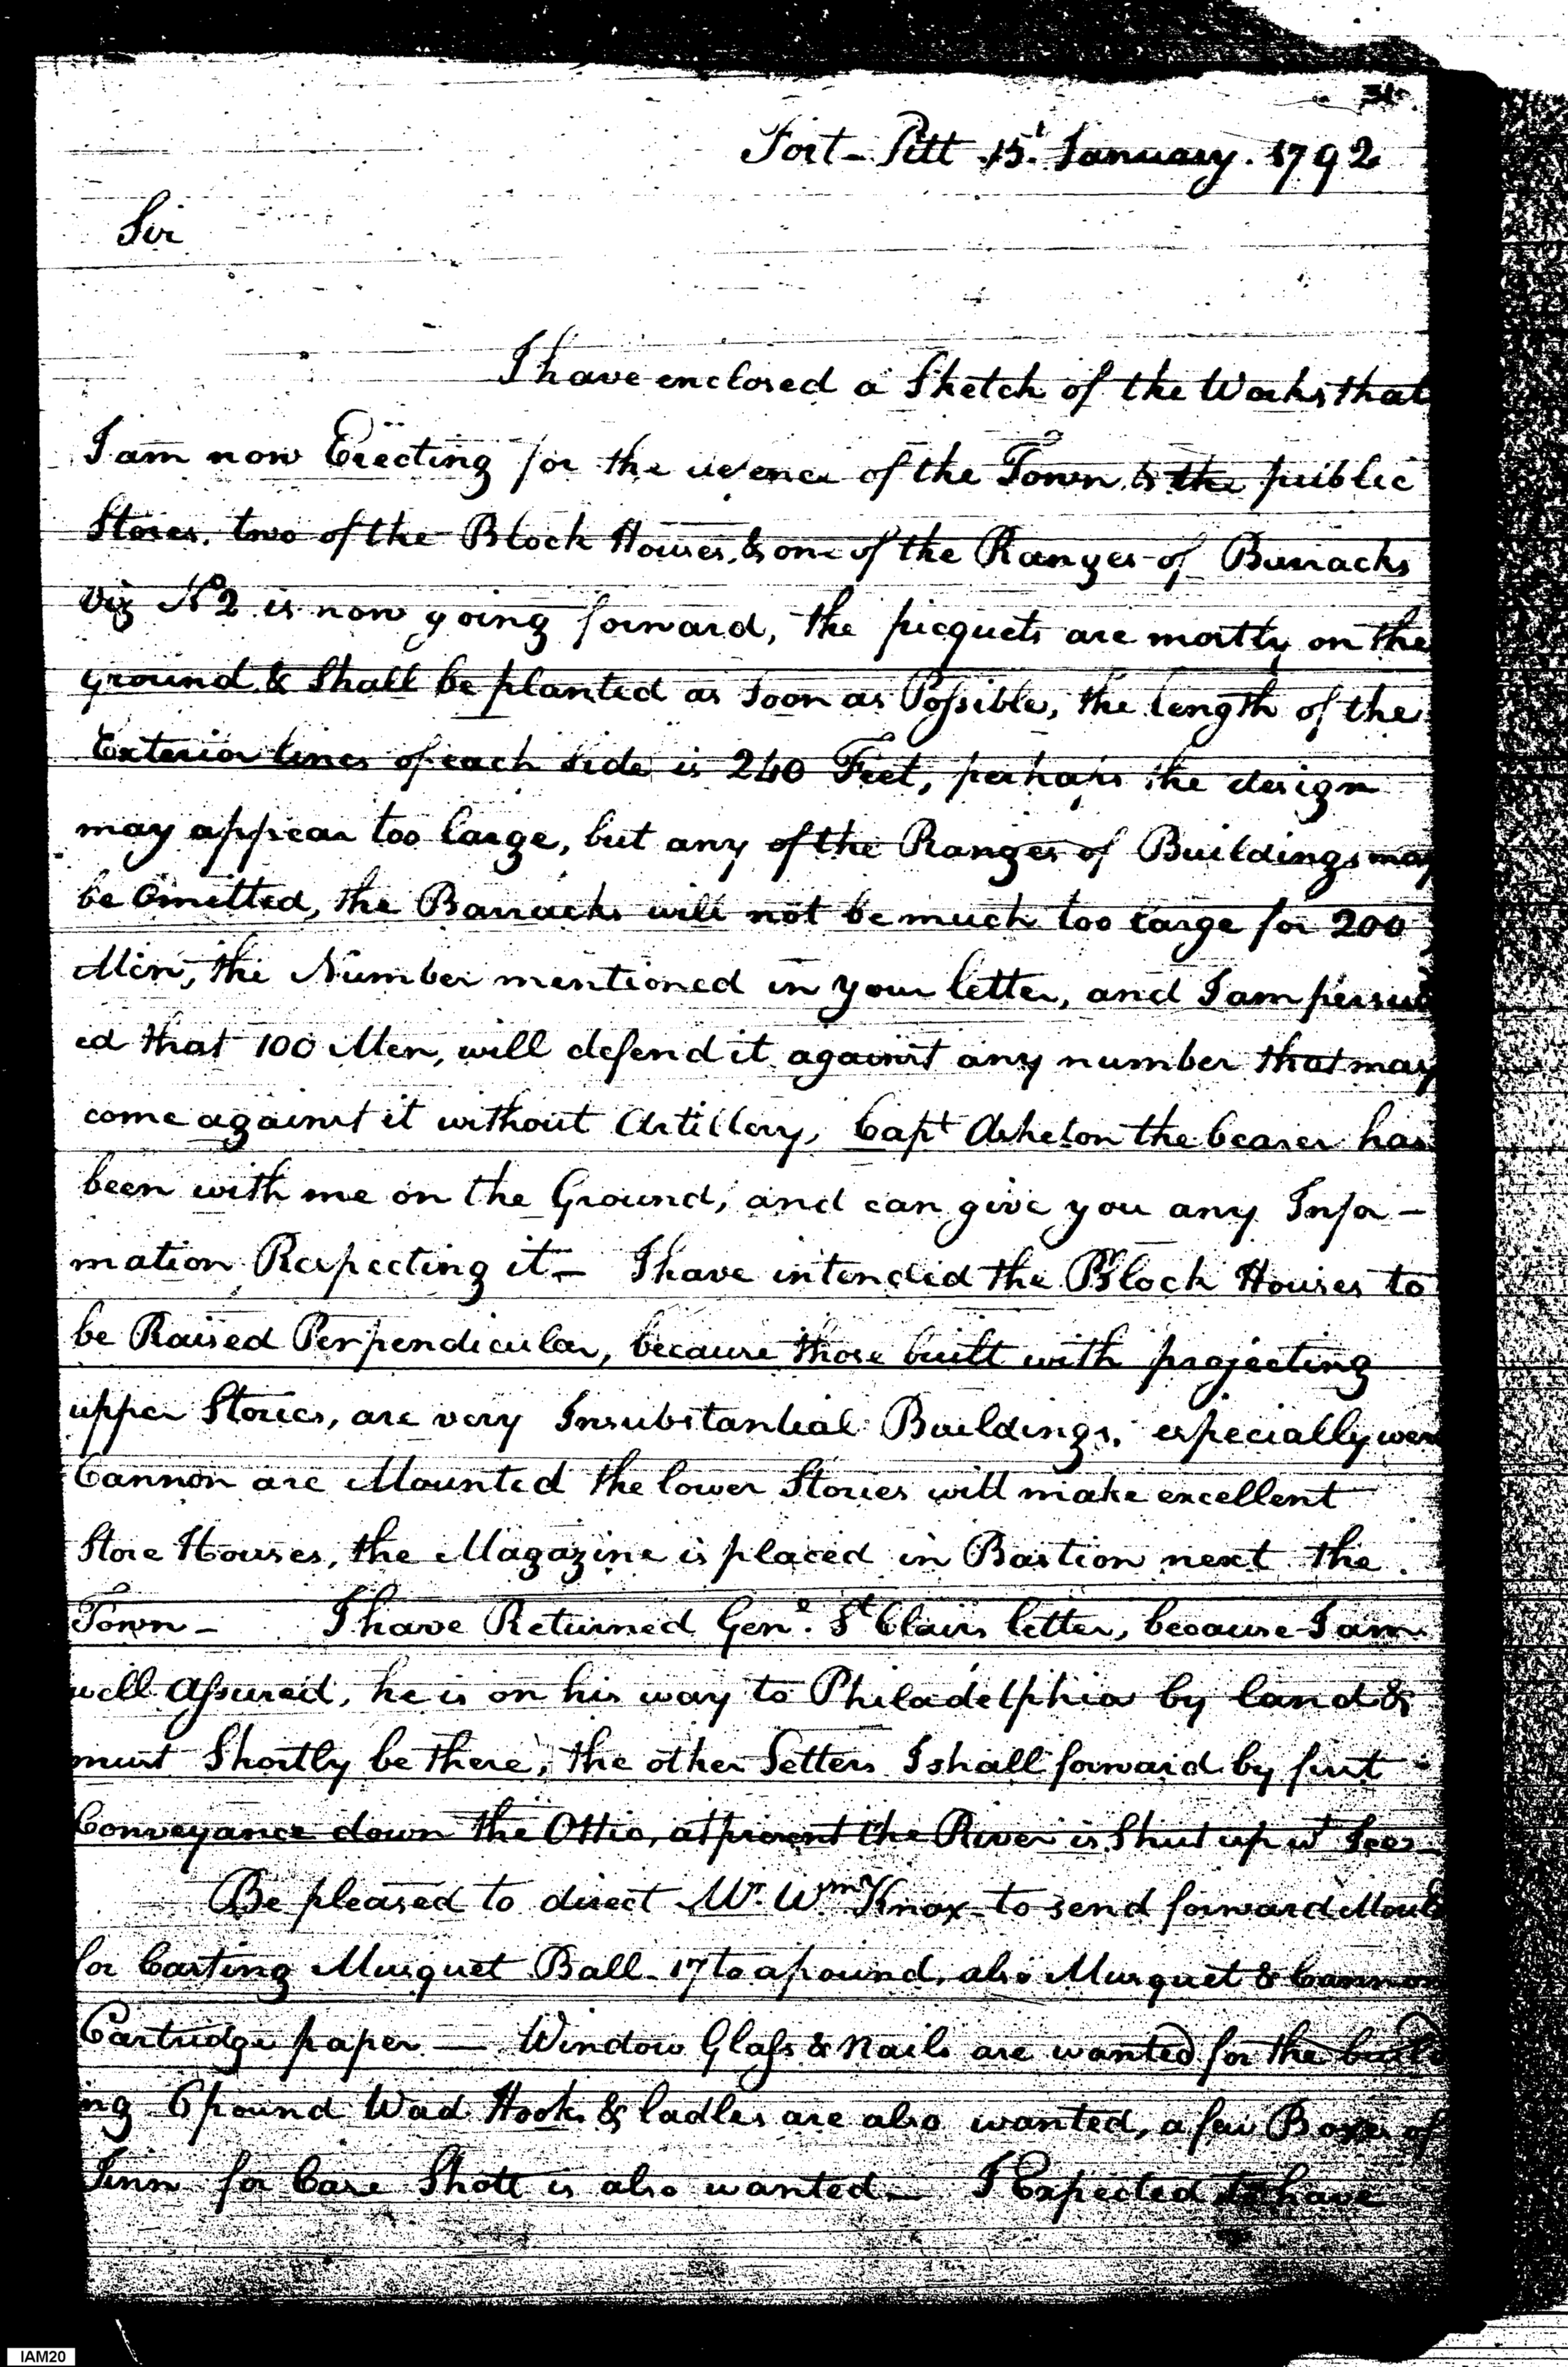 Fort-Pitt 15t January. 1792
Sir
I have enclosed a Sketch of the Works that
I am now Erecting for the of the Town & the public
Stores. two of the Block Houses, & one of the Ranges of Barracks
Viz No 2 is now going forward, the picquets are mostly on the
ground & Shall be planted as Soon as Possible, the length of the
Exterior lines of each side is 240 Feet, perhaps the design
may appear too large, but any of the Ranges of Buildings may
be Omitted, the Barracks will not be much too large for 200
Men, the Number mentioned in your letter, and I am
ed that 100 Men, will defend it against any number that may
come against it without Artillery, Capt Asheton the bearer has
been with me on the Ground, and can give you any Infor-
mation Respecting it— I have intended the Block Houses to
be Raised Perpendicular, because those built with projecting
upper Stories, are very Insubstantial Buildings, especially
Cannon are Mounted the lower Stories will make excellent
Store Houses, the Magazine is placed in Bastion next the
Town— I have Returned Genl. St Clairs letter, because I am
well Assured, he is on his way to Philadelphia by land &
must Shortly be there, the other Letters I shall forward by first
Conveyance down the Ohio, at present the River is Shut up wt Ice—
Be pleased to direct Mr. Wm Knox to send forward
for Casting Musquet Ball 17 to a pound, also Musquet & Cannon
Cartridge paper — Window Glass & Nails are wanted for the build
ing 6 pound Wad Hooks & ladles are also wanted, a few Boxes of
Tinn for Case Shott is also wanted— I Expected to have
IAM20